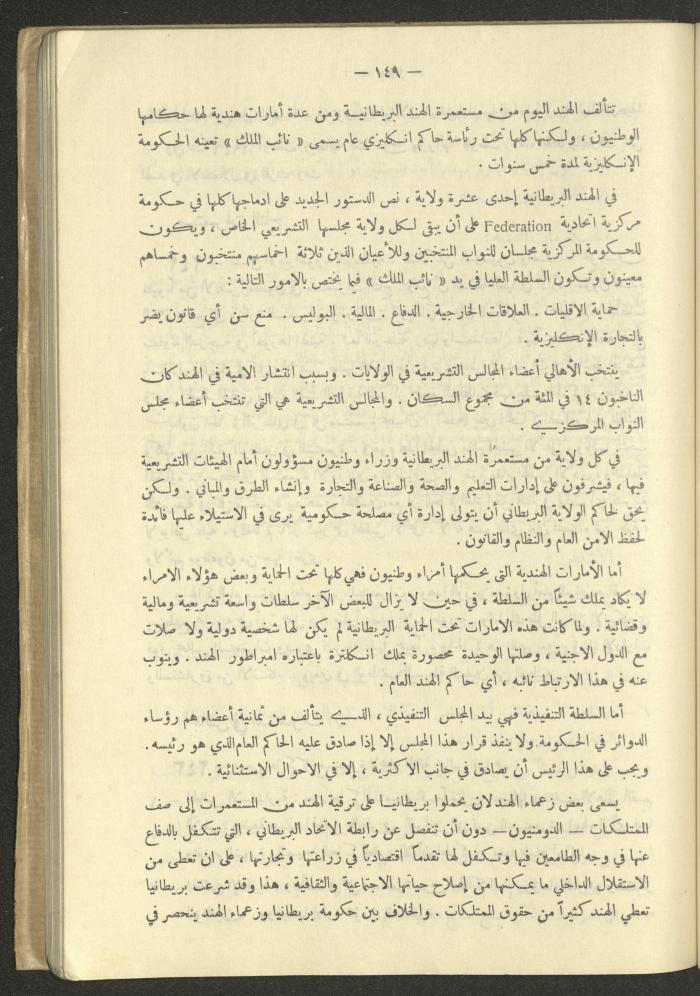 — ١٤٩ —
تتألف الهند اليوم من مستعمرة الهند البريطانية ومن عدة أمارات هندية لها حكامها
الوطنيون ، ولكنها كلها تحت رئاسة حاكم انكليزي عام يسمى « نائب الملك » تعينه الحكومة
الإنكليزية لمدة خمس سنوات .
في الهند البريطانية إحدى عشرة ولاية ، نص الدستور الجديد على ادماجها كلها في حكومة
مركزية اتحادية Federation على أن يبقى لكل ولاية مجلسها التشريعي الخاص ، ويكون
للحكومة المركزية مجلسان للنواب المنتخبين وللأعيان الذين ثلاثة اخماسهم منتخبون وخمساهم
معينون وتكون السلطة العليا في يد « نائب الملك » فيما يختص بالامور التالية :
حماية الاقليات . العلاقات الخارجية . الدفاع . المالية . البوليس . منع سن أي قانون يضر
بالتجارة الإنكليزية .
ينتخب الأهالي أعضاء المجالس التشريعية في الولايات . وبسبب انتشار الامية في الهند كان
الناخبون ١٤ في المئة من مجموع السكان . والمجالس التشريعية هي التي تنتخب أعضاء مجلس
النواب المركزي .
في كل ولاية من مستعمرة الهند البريطانية وزراء وطنيون مسؤولون أمام الهيئات التشريعية
فيها ، فيشرفون على إدارات التعليم والصحة والصناعة والتجارة وإنشاء الطرق والمباني . ولكن
يحق لحاكم الولاية البريطاني أن يتولى إدارة أي مصلحة حكومية يرى في الاستيلاء عليها فائدة
لحفظ الامن العام والنظام والقانون .
أما الأمارات الهندية التي يحكمها أمراء وطنيون فهي كلها تحت الحماية وبعض هؤلاء الامراء
لا يكاد يملك شيئاً من السلطة ، في حين لا يزال للبعض الآخر سلطات واسعة تشريعية ومالية
وقضائية . ولما كانت هذه الامارات تحت الحماية البريطانية لم يكن لها شخصية دولية ولا صلات
مع الدول الاجنبية ، وصلتها الوحيدة محصورة بملك انكلترة باعتباره امبراطور الهند . وينوب
عنه في هذا الارتباط نائبه ، أي حاكم الهند العام .
أما السلطة التنفيذية فهي بيد المجلس التنفيذي ، الذي يتألف من ثمانية أعضاء هم رؤساء
الدوائر في الحكومة ولا ينفذ قرار هذا المجلس إلا إذا صادق عليه الحاكم العام الذي هو رئيسه .
ويجب على هذا الرئيس أن يصادق في جانب الاكثرية ، إلا في الاحوال الاستثنائية .
يسعى بعض زعماء الهند لان يحملوا بريطانيا على ترقية الهند من المستعمرات إلى صف
الممتلكات — الدومنيون — دون أن تنفصل عن رابطة الاتحاد البريطاني ، التي تتكفل بالدفاع
عنها في وجه الطامعين فيها وتكفل لها تقدماً اقتصادياً في زراعتها وتجارتها ، على ان تعطى من
الاستقلال الداخلي ما يمكنها من إصلاح حياتها الاجتماعية والثقافية ، هذا وقد شرعت بريطانيا
تعطي الهند كثيراً من حقوق الممتلكات . والخلاف بين حكومة بريطانيا وزعماء الهند ينحصر في